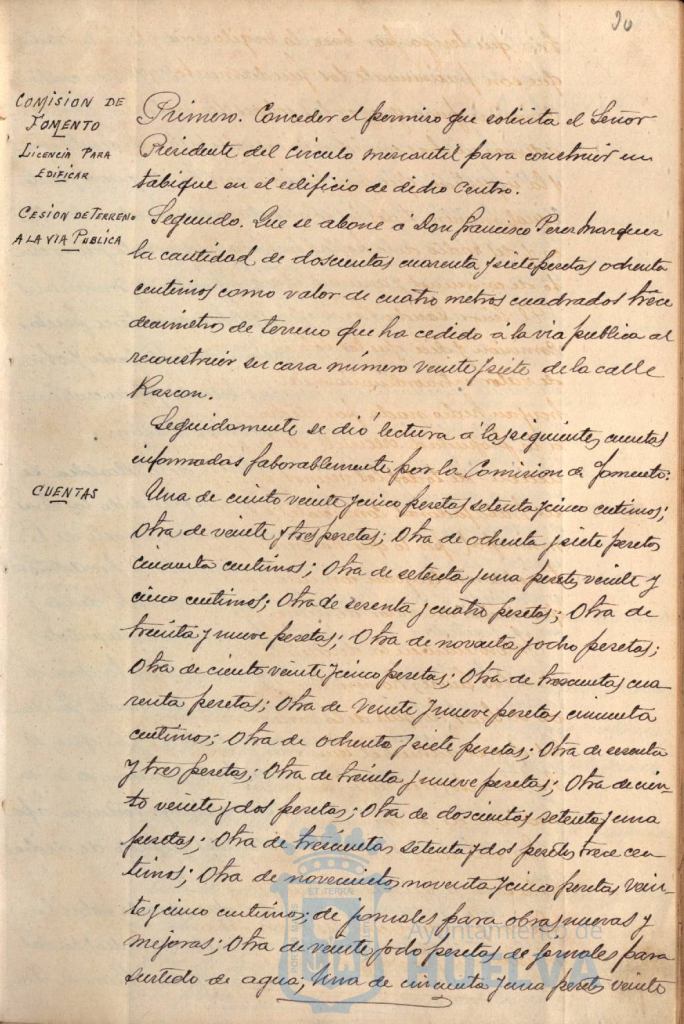 90
COMISION DE
FOMENTO
LICENCIA PARA
EDIFICAR
Primero. Conceder el permiso que solicita el Señor
Presidente del Circulo mercantil para construir un
tabique en el edificio de dicho Centro.
CESION DE TERRENO
A LA VIA PUBLICA
Segundo. Que se abone á Don Francisco Perez Marquez
la cantidad de doscientas cuarenta y siete pesetas ochenta
centimos como valor de cuatro metros cuadrados trece
decimetros de terreno que ha cedido á la via publica al
reconstruir su casa número veinte y siete de la calle
Rascon.
Seguidamente se dió lectura á las siguientes cuentas
informadas faborablemente por la Comision de Fomento:
CUENTAS
Una de ciento veinte y cinco pesetas setenta y cinco centimos;
Otra de veinte y tres pesetas; Otra de ochenta y siete pesetas
cincuenta centimos; Otra de setenta y una pesetas veinte y
cinco centimos; Otra de sesenta y cuatro pesetas; Otra de
treinta y nueve pesetas; Otra de noventa y ocho pesetas;
Otra de ciento veinte y cinco pesetas; Otra de trescientas cua
renta pesetas; Otra de veinte y nueve pesetas cincuenta
centimos; Otra de ochenta y siete pesetas; Otra de sesenta
y tres pesetas; Otra de treinta y nueve pesetas; Otra de cien-
to veinte y dos pesetas; Otra de doscientas setenta y una
pesetas; Otra de trescientas setenta y dos pesetas trece cen-
timos; Otra de novecientos noventa y cinco pesetas vein-
te y cinco centimos; de jornales para obras nuevas y
mejoras; Otra de veinte y ocho pesetas de jornales para
surtido de agua; Una de cincuenta y una pesetas veinte
Ayuntamiento de
HUELVA